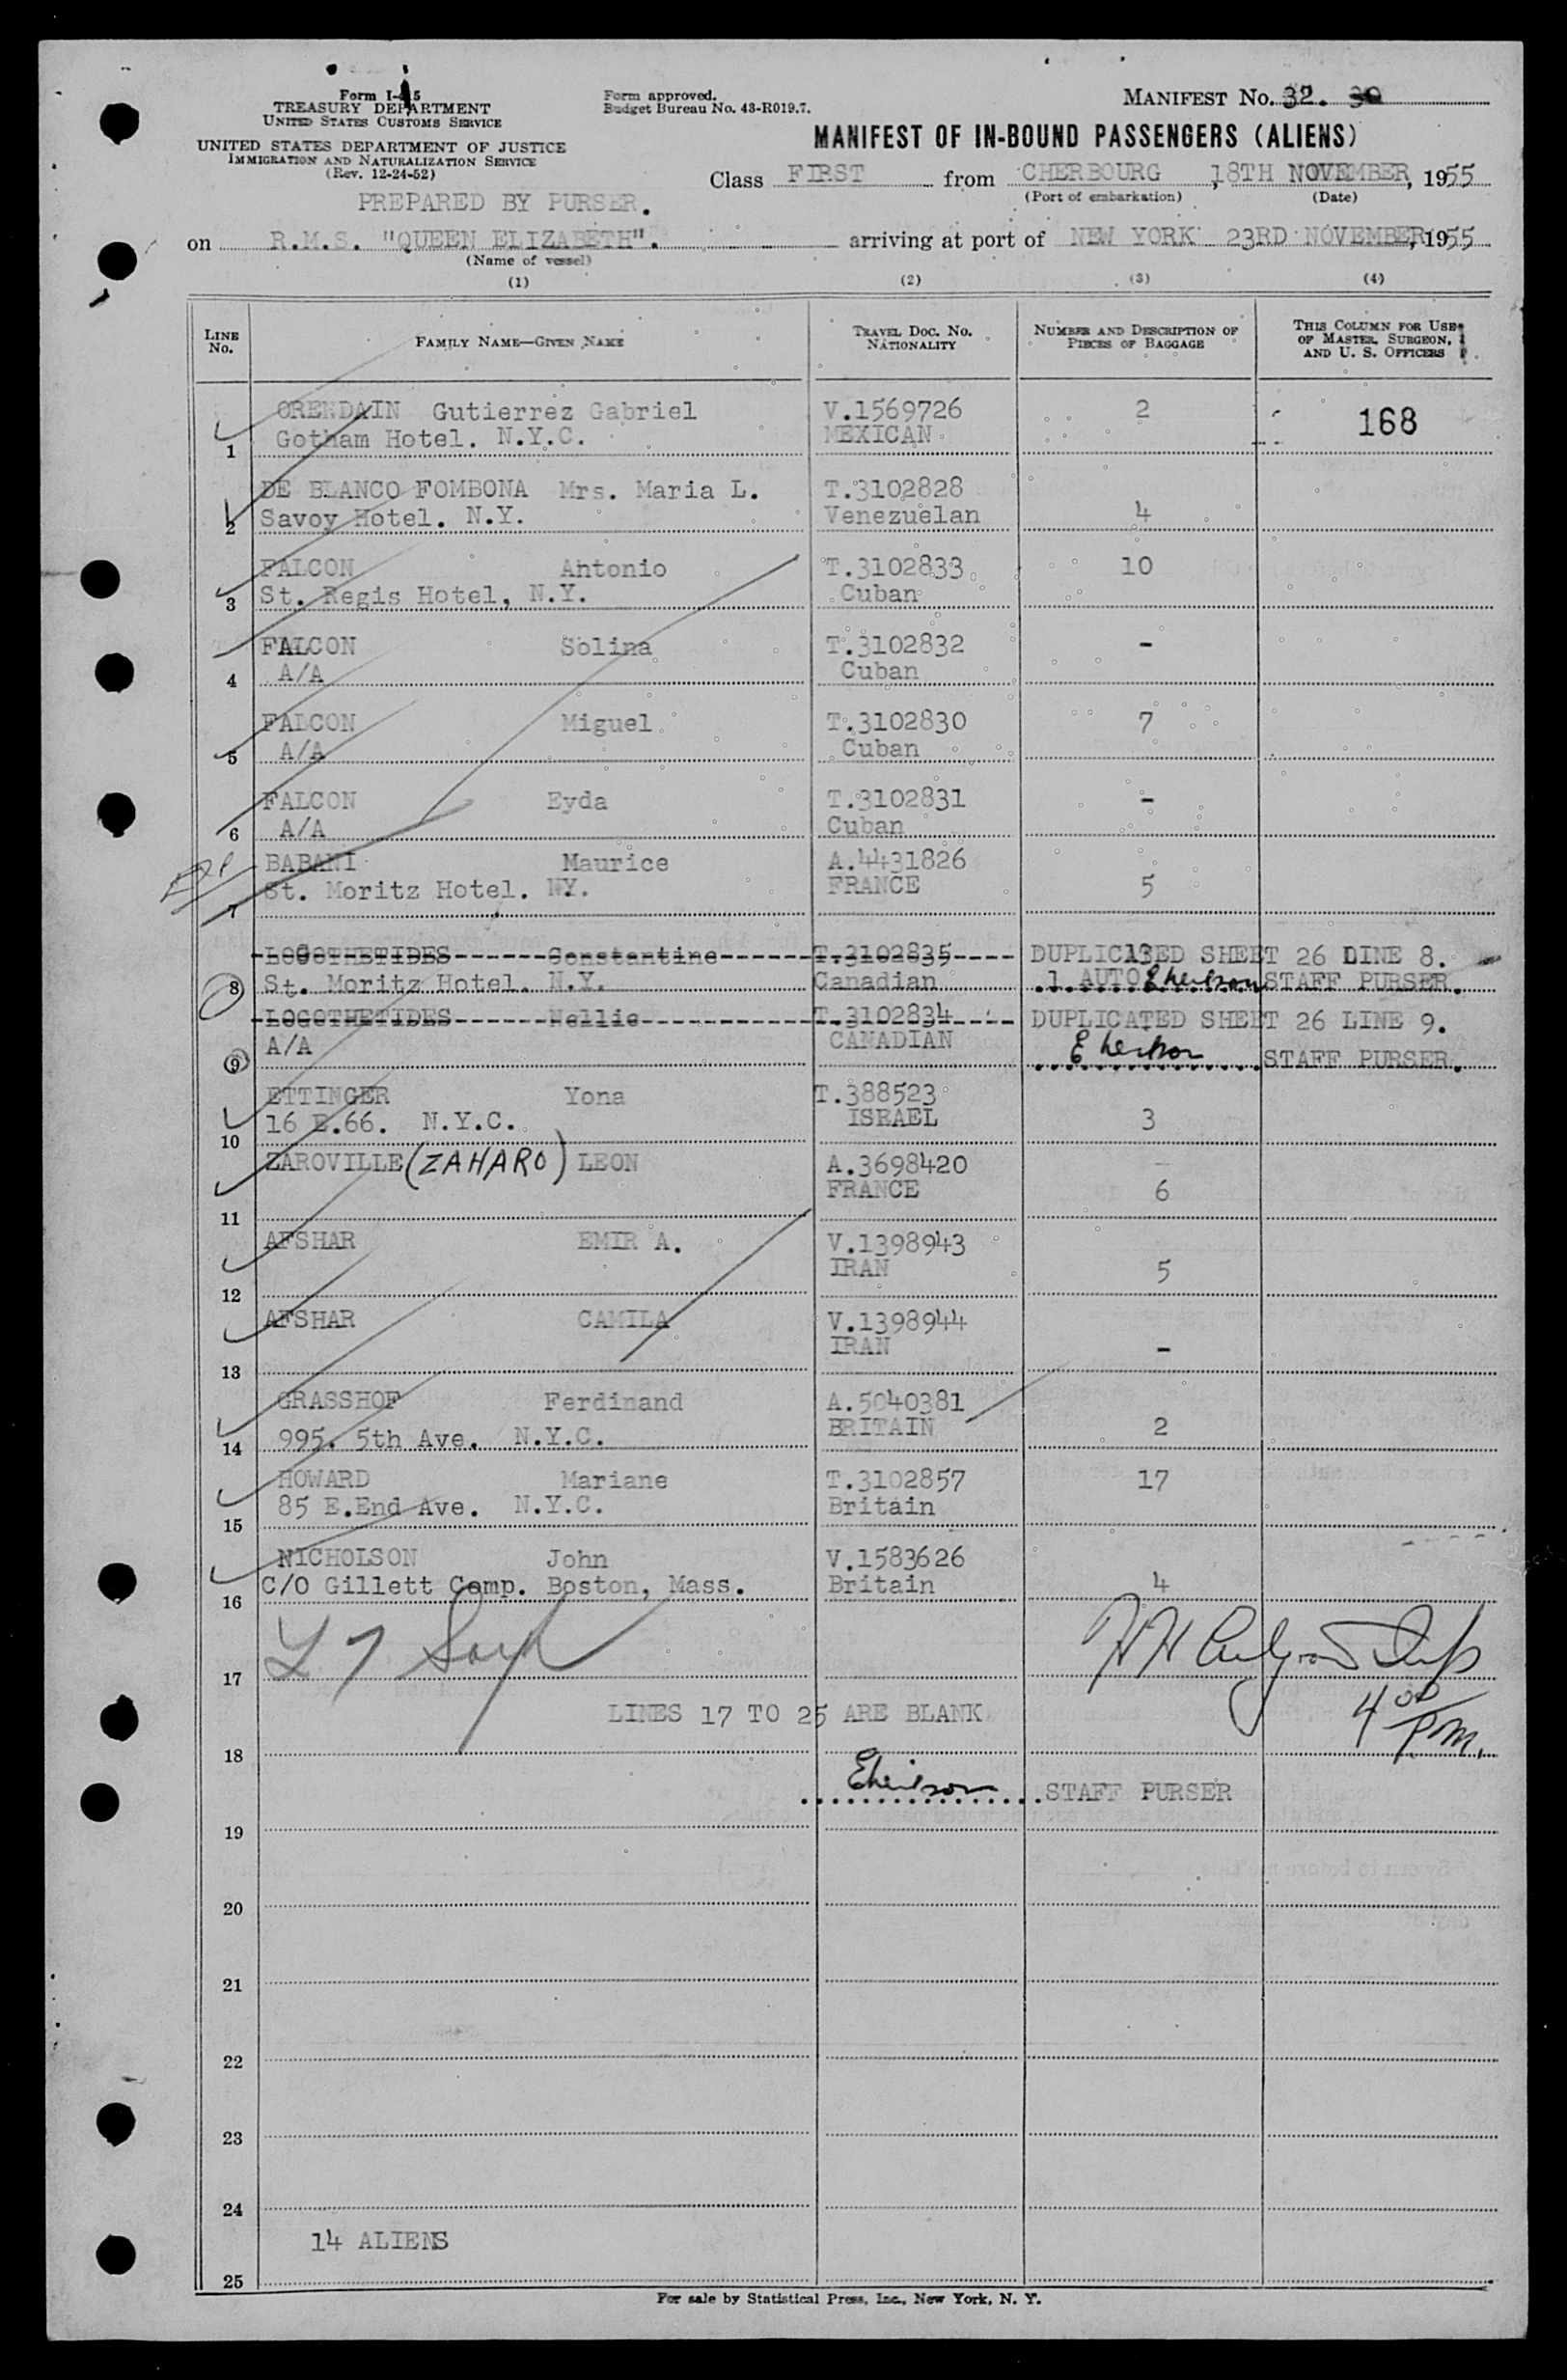 Form I-415
TREASURY DEPARTMENT
UNITED STATES CUSTOMS SERVICE
UNITED STATES DEPARTMENT OF JUSTICE
IMMIGRATION AND NATURALIZATION SERVICE
(Rev. 12-24-52)
PREPARED BY PURSER.
Form approved.
Budget Bureau No. 43-R019.7.
MANIFEST NO. 32. 30
MANIFEST OF IN-BOUND PASSENGERS (ALIENS)
Class FIRST from CHERBOURG, 18TH NOVEMBER, 1955
(Port of embarkation) (Date)
on R.M.S. "QUEEN ELIZABETH". arriving at port of NEW YORK 23RD NOVEMBER, 1955
(Name of vessel)
(1) (2) (3) (4)
LINE No. FAMILY NAME—GIVEN NAME TRAVEL DOC. NO. NATIONALITY NUMBER AND DESCRIPTION OF PIECES OF BAGGAGE THIS COLUMN FOR USE OF MASTER, SURGEON, AND U. S. OFFICERS
ORENDAIN Gutierrez Gabriel V.1569726 2 168
1 Gotham Hotel. N.Y.C. MEXICAN
DE BLANCO FOMBONA Mrs. Maria L. T.3102828
2 Savoy Hotel. N.Y. Venezuelan 4
FALCON Antonio T.3102833 10
3 St. Regis Hotel, N.Y. Cuban
FALCON Solina T.3102832 -
4 A/A Cuban
FALCON Miguel T.3102830 7
5 A/A Cuban
FALCON Eyda T.3102831 -
6 A/A Cuban
BABANI Maurice A.4431826
7 St. Moritz Hotel. NY. FRANCE 5
LOGOTHETIDES Constantine T.3102835 13 DUPLICATED SHEET 26 LINE 8.
8 St. Moritz Hotel. N.Y. Canadian 1 AUTO STAFF PURSER.
LOGOTHETIDES Nellie T.3102834 DUPLICATED SHEET 26 LINE 9.
9 A/A CANADIAN STAFF PURSER.
ETTINGER Yona T.388523
10 16 E.66. N.Y.C. ISRAEL 3
ZAROVILLE (ZAHARO) LEON A.3698420
11 FRANCE 6
AFSHAR EMIR A. V.1398943
12 IRAN 5
AFSHAR CAMILA V.1398944
13 IRAN -
GRASSHOF Ferdinand A.5040381
14 995. 5th Ave. N.Y.C. BRITAIN 2
HOWARD Mariane T.3102857 17
15 85 E.End Ave. N.Y.C. Britain
NICHOLSON John V.1583626
16 C/O Gillett Comp. Boston, Mass. Britain 4
17
LINES 17 TO 25 ARE BLANK
4 00 PM.
18
STAFF PURSER
19
20
21
22
23
24
14 ALIENS
25
For sale by Statistical Press, Inc., New York, N. Y.